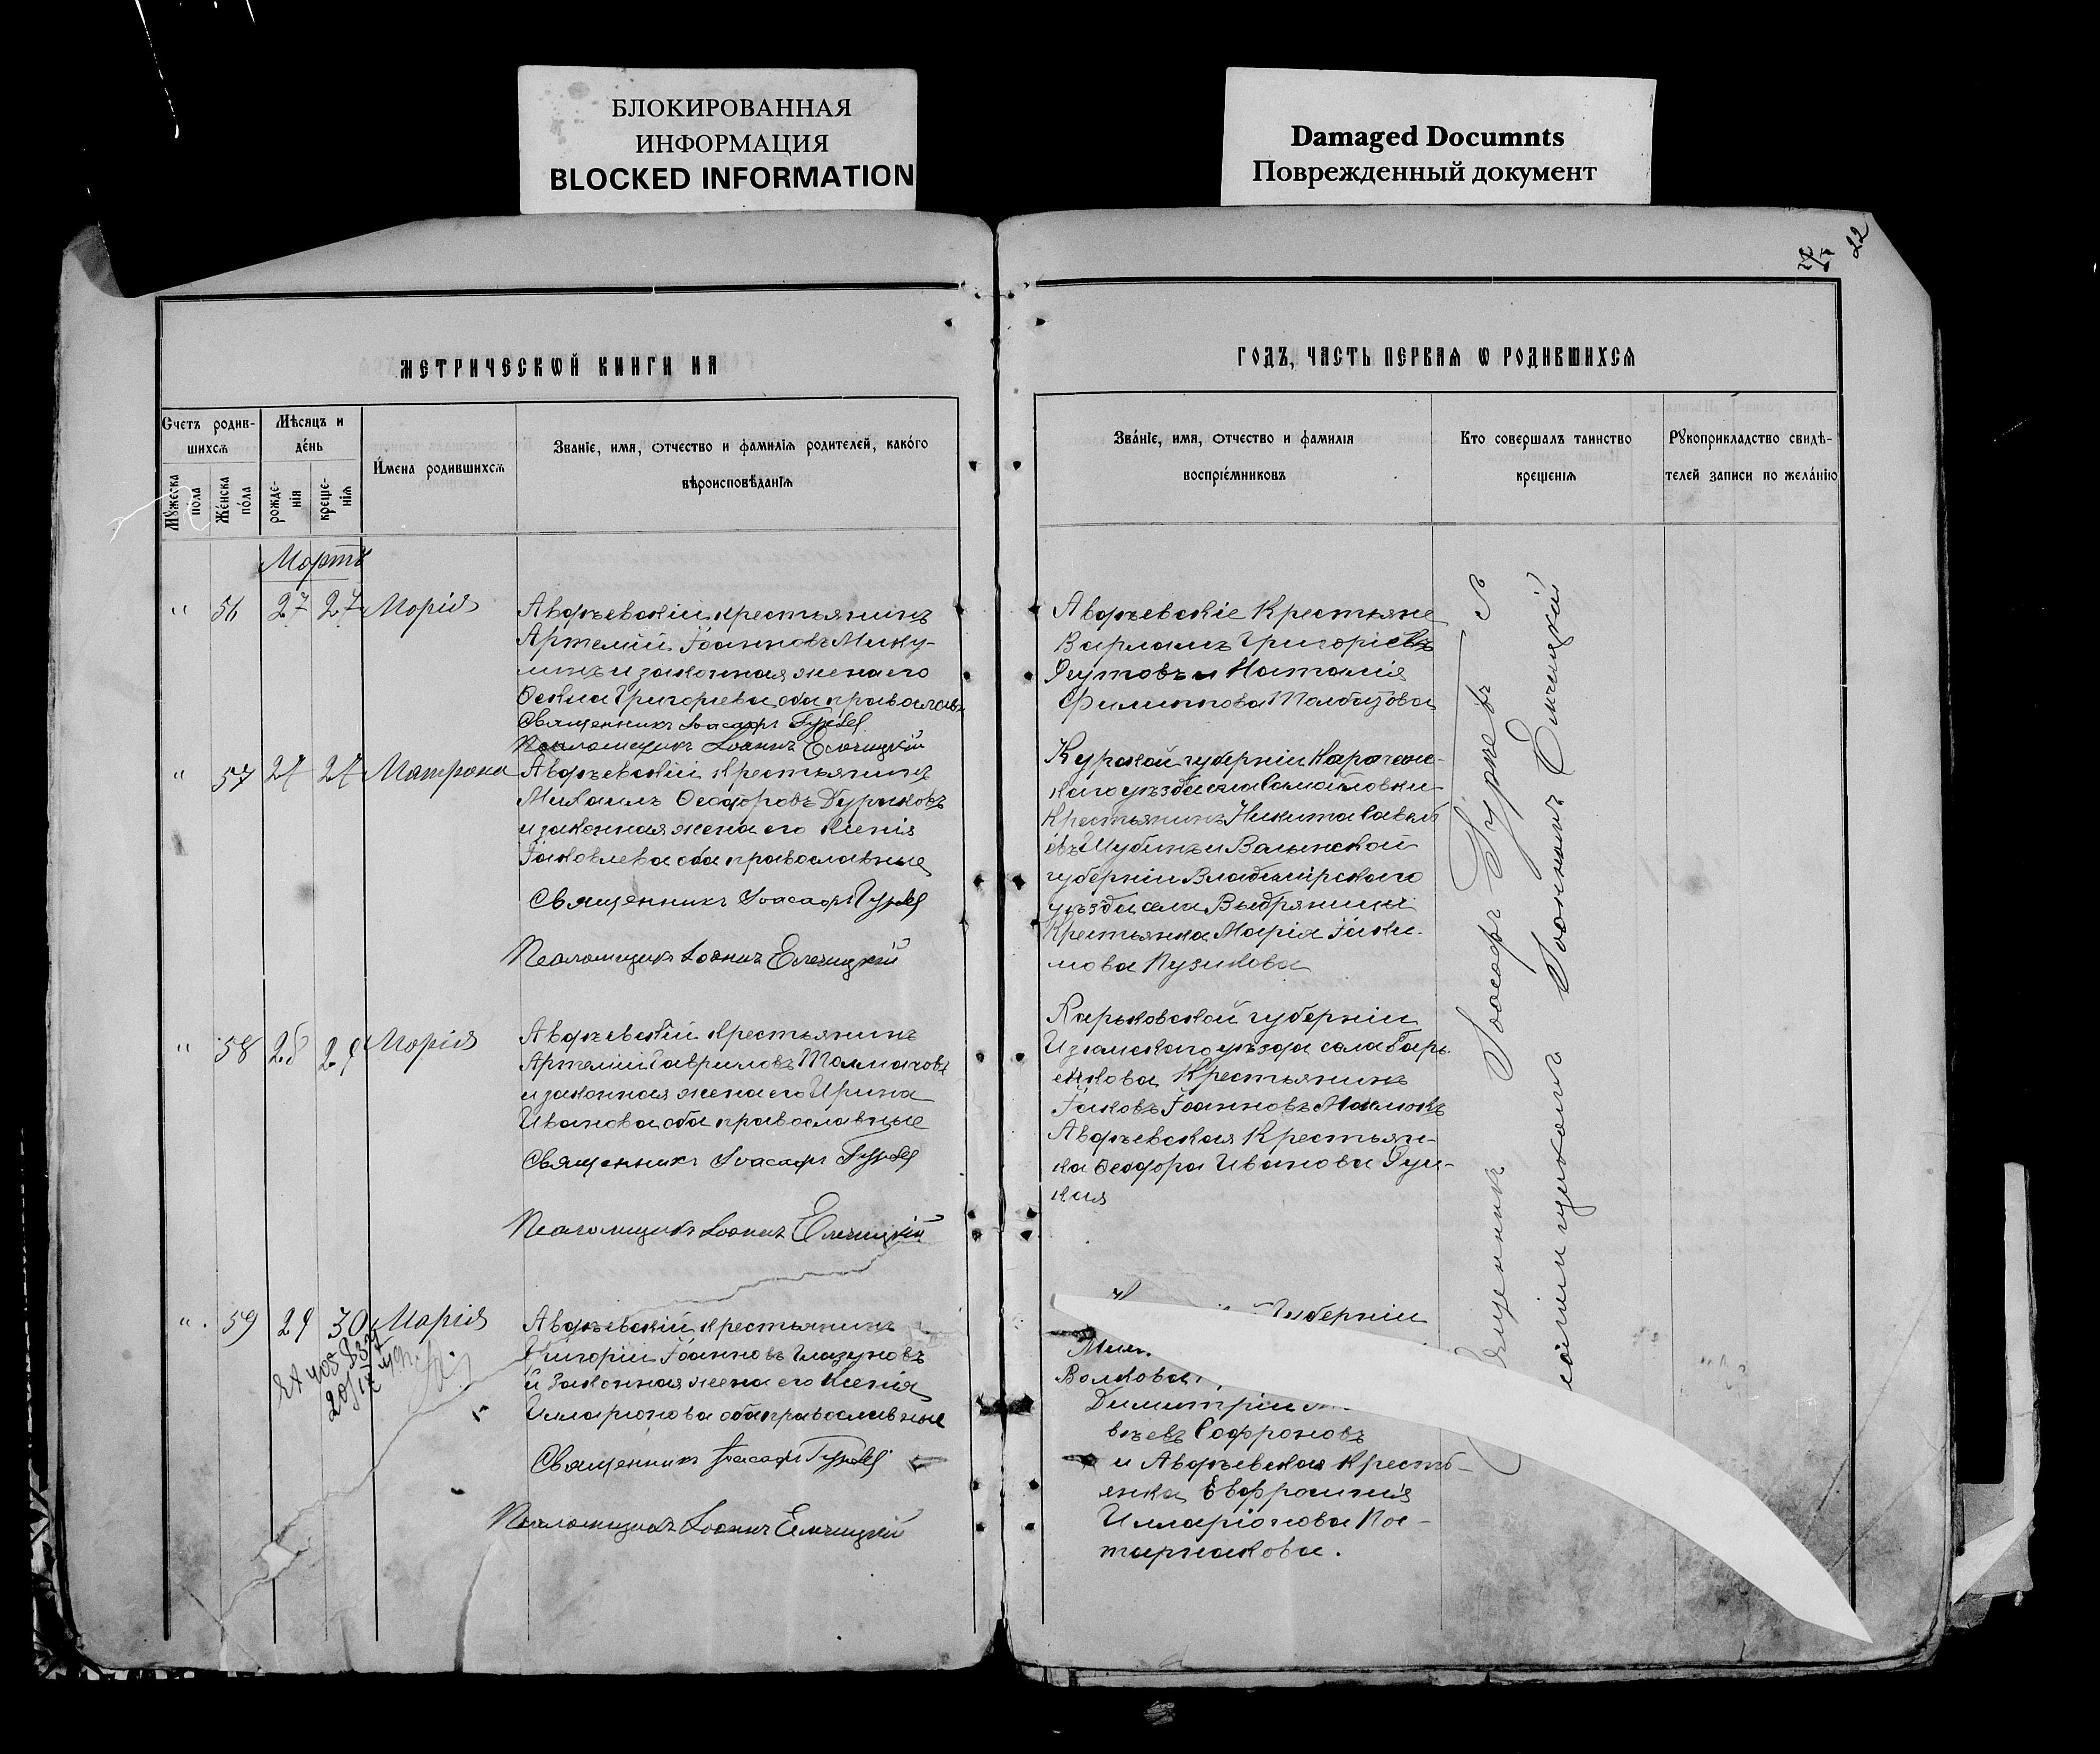 БЛОКИРОВАННАЯ
ИНФОРМАЦИЯ
BLOCKED INFORMATION
Damaged Documnts
Поврежденный документ
22
МЕТРИЧЕСКѠЙ КНИГИ НА
ГОДЪ, ЧАСТЬ ПЕРВАѦ Ѡ РОДИВШИХСѦ
Счетъ родив-
шихсѧ
Мѣсѧцъ и
де́нь
Мꙋжеска
по́ла
Же́нска
по́ла
рожде-
нїѧ
креще-
нїѧ
И́мена родившихсѧ
Званїе, имѧ, отчество и фамилїѧ родителей, како́го
вѣроисповѣданїѧ
Зва́нїе, имѧ, отчество и фамилїѧ
воспрїе́мниковъ
Кто совершалъ таинство
крещенїѧ
Рꙋкоприкладство свидѣ-
телей записи по жела́нїю
Мартъ
" 56 27 27 Марія
Авдѣевскій крестьянинъ
Артемій Іоанновъ Мику-
линъ и законная жена его
Ѳекла Григорьева оба православ
Священникъ Іоасафъ Гурьев
Псаломщикъ Іоаннъ Ельчицкій
Авдѣевскіе Крестьяне
Варламъ Григоріевъ
и Наталія
Филиппова
" 57 27 27 Матрона
Авдѣевскій крестьянинъ
Михаилъ Ѳеодоровъ
и законная жена его Ксенія
Іаковлева оба православные
Священникъ Іоасафъ Гурьев
Псаломщикъ Іоаннъ Ельчицкій
Курской губерніи Карочанс-
каго уѣзда села
Крестьянинъ Никита Савель
евъ Шубинъ и Волынской
губерніи Владимірскаго
уѣзда села
Крестьянка Марія Іаки-
мова Пузикова
" 58 28 29 Марія
Авдѣевскій крестьянинъ
Артемій Гавриловъ Толмачовъ
и законная жена его Ирина
Иванова оба православные
Священникъ Іоасафъ Гурьев
Псаломщикъ Іоаннъ Ельчицкій
Харьковской губерніи
Изюмскаго уѣзда села Барв-
енкова Крестьянинъ
Іаковъ Іоанновъ
Авдѣевская Крестьян-
ка Ѳеодора Иванова
кая
" 59 29 30 Марія
Авдѣевскій крестьянинъ
Григорій Іоанновъ Глазуновъ
и законная жена его Ксенія
Илларіонова оба православные
Священникъ Іоасафъ Гурьев
Псаломщикъ Іоаннъ Ельчицкій
Губерніи
Волкова
Димитрій
вѣевъ Софроновъ
и Авдѣевская Кресть-
янка Евфросинія
Илларіонова Пос-
тарнакова.
Іоасафъ Гурьевъ
Іоаннъ Ельчицкій